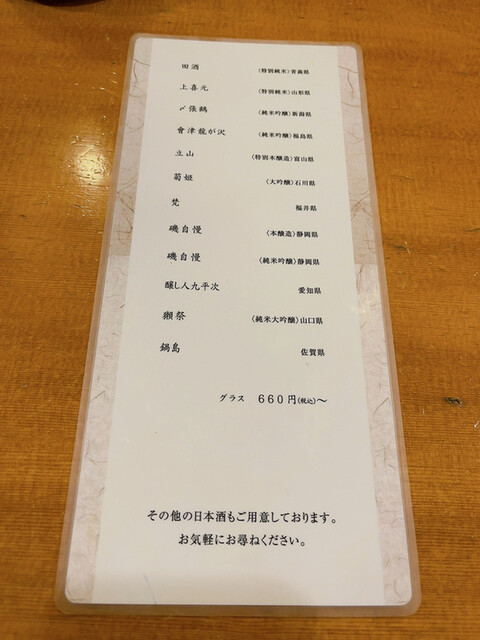 田酒 〈特別純米〉青森県
上喜元 〈特別純米〉山形県
〆張鶴 〈純米吟醸〉新潟県
會津龍が沢 〈純米吟醸〉福島県
立山 〈特別本醸造〉富山県
菊姫 〈大吟醸〉石川県
梵 福井県
磯自慢 〈本醸造〉静岡県
磯自慢 〈純米吟醸〉静岡県
醸し人九平次 愛知県
獺祭 〈純米大吟醸〉山口県
鍋島 佐賀県
グラス 660円(税込)〜
その他の日本酒もご用意しております。
お気軽にお尋ねください。